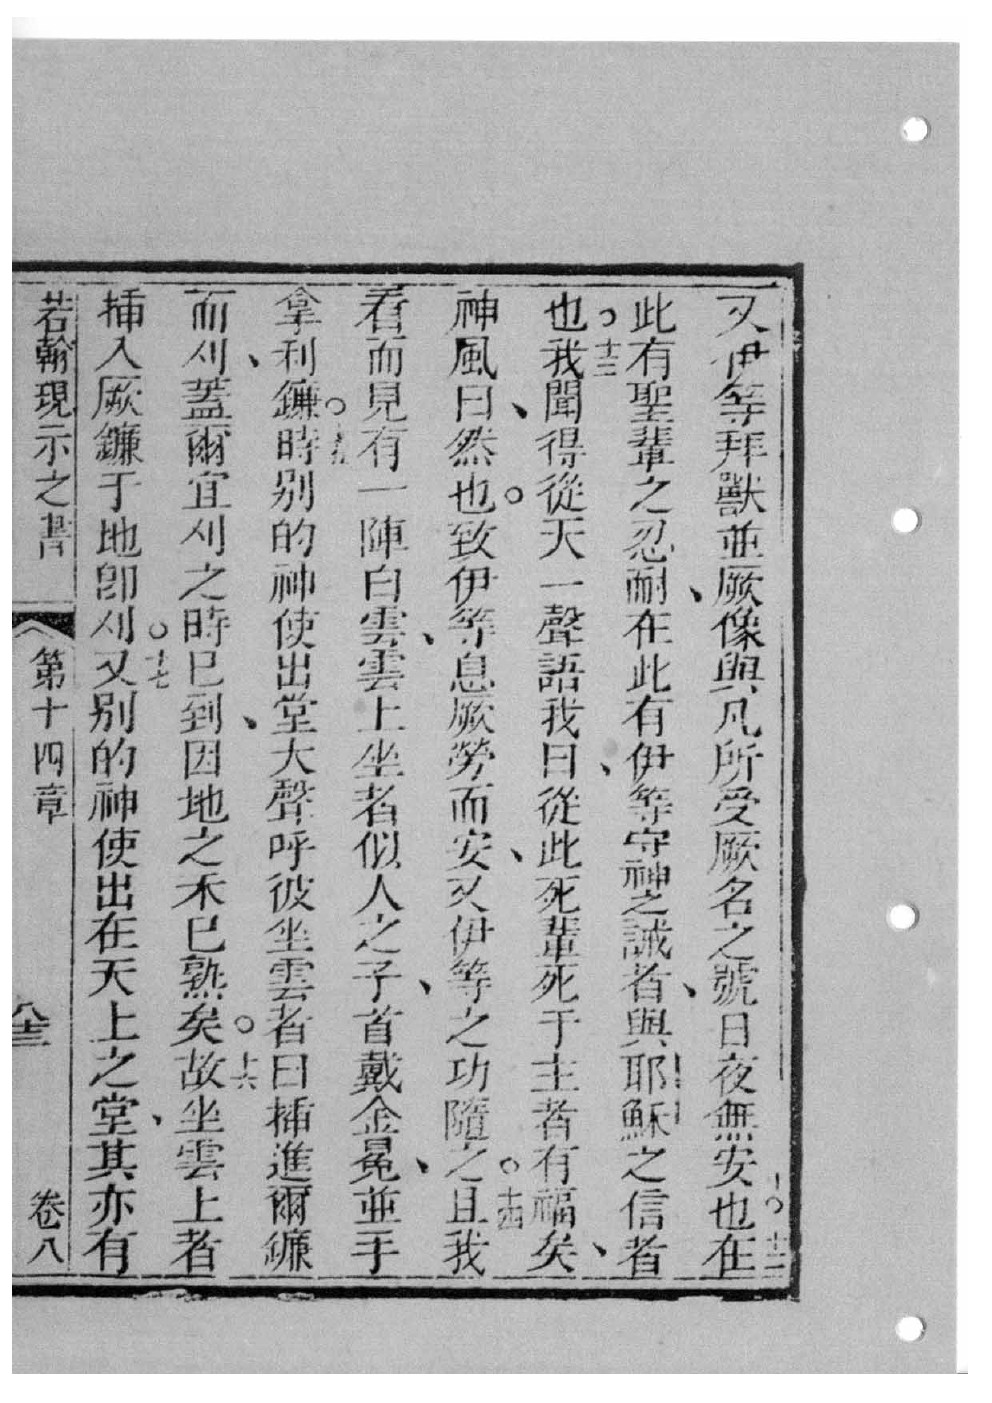 又伊等拜獸、並厥像與凡所受厥名之號日夜無安也。十二在
此有聖輩之忍耐在此有伊等守神之誡者、與耶穌之信者
也。十三我聞得從天一聲語我曰、從此死輩死于主者有福矣、
神風曰、然也。致伊等息厥勞而安、又伊等之功隨之。十四且我
看而見有一陣白雲、雲上坐者似人之子、首戴金冕、並手
拿利鐮。十五時別的神使出堂大聲呼彼坐雲者曰插進爾鐮
而刈、蓋爾宜刈之時已到、因地之禾已熟矣。十六故坐雲上者
插入厥鐮于地卽刈。十七又别的神使出在天上之堂、其亦有
若翰現示之書 第十四章 八十三 卷八